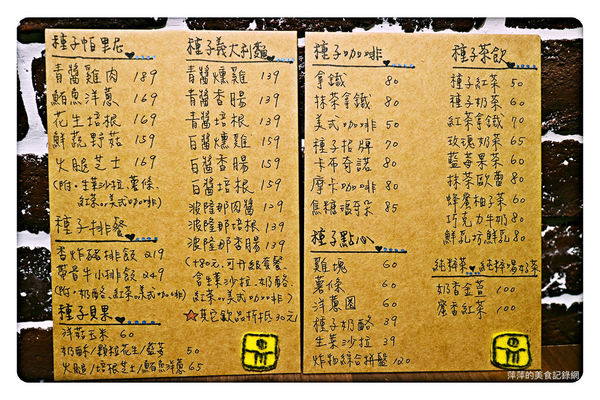 種子帕里尼
青醬雞肉 189
鮪魚洋蔥 169
花生培根 169
鮮蔬野菇 159
火腿芝士 169
(附。生菜沙拉、薯條、
紅茶or美式咖啡)
種子排餐
香炸豬排飯 219
帶骨牛小排飯 249
(附。奶酪、紅茶or美式咖啡)
種子貝果
洋菇玉米 60
奶酥/顆粒花生/藍莓 50
火腿/培根芝士/鮪魚洋蔥 65
種子義大利麵
青醬燻雞 139
青醬香腸 139
青醬培根 139
白醬燻雞 159
白醬香腸 159
白醬培根 159
波隆那肉醬 129
波隆那培根 139
波隆那香腸 139
(+80元,可升級套餐
含生菜沙拉、奶酪、
紅茶or美式咖啡)
☆其它飲品折抵30元)
種子咖啡
拿鐵 80
抹茶拿鐵 80
美式咖啡 50
種子招牌 70
卡布奇諾 80
摩卡咖啡 80
焦糖瑪奇朵 85
種子點心
雞塊 60
薯條 60
洋蔥圈 60
種子奶酪 39
生菜沙拉 39
炸物綜合拼盤 120
種子茶飲
種子紅茶 50
種子奶茶 60
紅茶拿鐵 70
玫瑰奶茶 65
藍莓果茶 60
抹茶歐蕾 80
蜂蜜柚子茶 60
巧克力牛奶 80
鮮乳坊鮮乳 80
純粹茶 純粹喝好茶
奶香金萱 100
蜜香紅茶 100
萍萍的美食記錄網